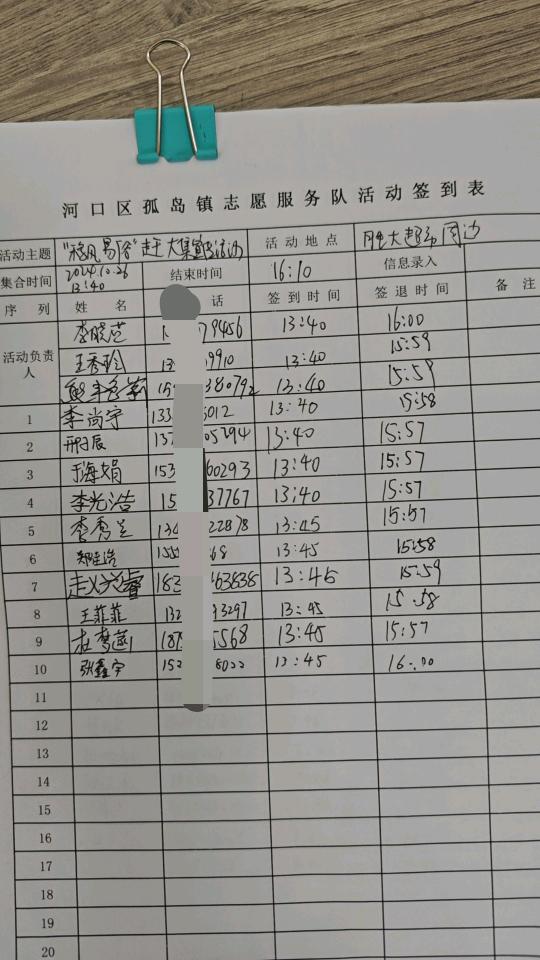 河口区孤岛镇志愿服务队活动签到表
活动主题 "移风易俗"赶大集 活动 活动地点 大超市周边
集合时间 2024.10.26 13:40 结束时间 16:10 信息录入
序列 姓名 话 签到时间 签退时间 备注
活动负责人
李晓范 9456 13:40 16:00
王秀玲 13 9910 13:40 15:59
15 38079 13:40 15:59
1 李尚宇 133 5012 13:40 15:58
2 邢辰 137 05294 13:40 15:57
3 于海娟 153 60293 13:40 15:57
4 李光浩 15 37767 13:40 15:57
5 李秀兰 22878 13:45 15:57
6 郑佳浩 155 68 13:45 15:58
7 183 63838 13:45 15:59
8 王菲菲 132 3297 13:45 15:58
9 杜梦 187 5568 13:45 15:57
10 张鑫宇 152 8022 13:45 16:00
11
12
13
14
15
16
17
18
19
20